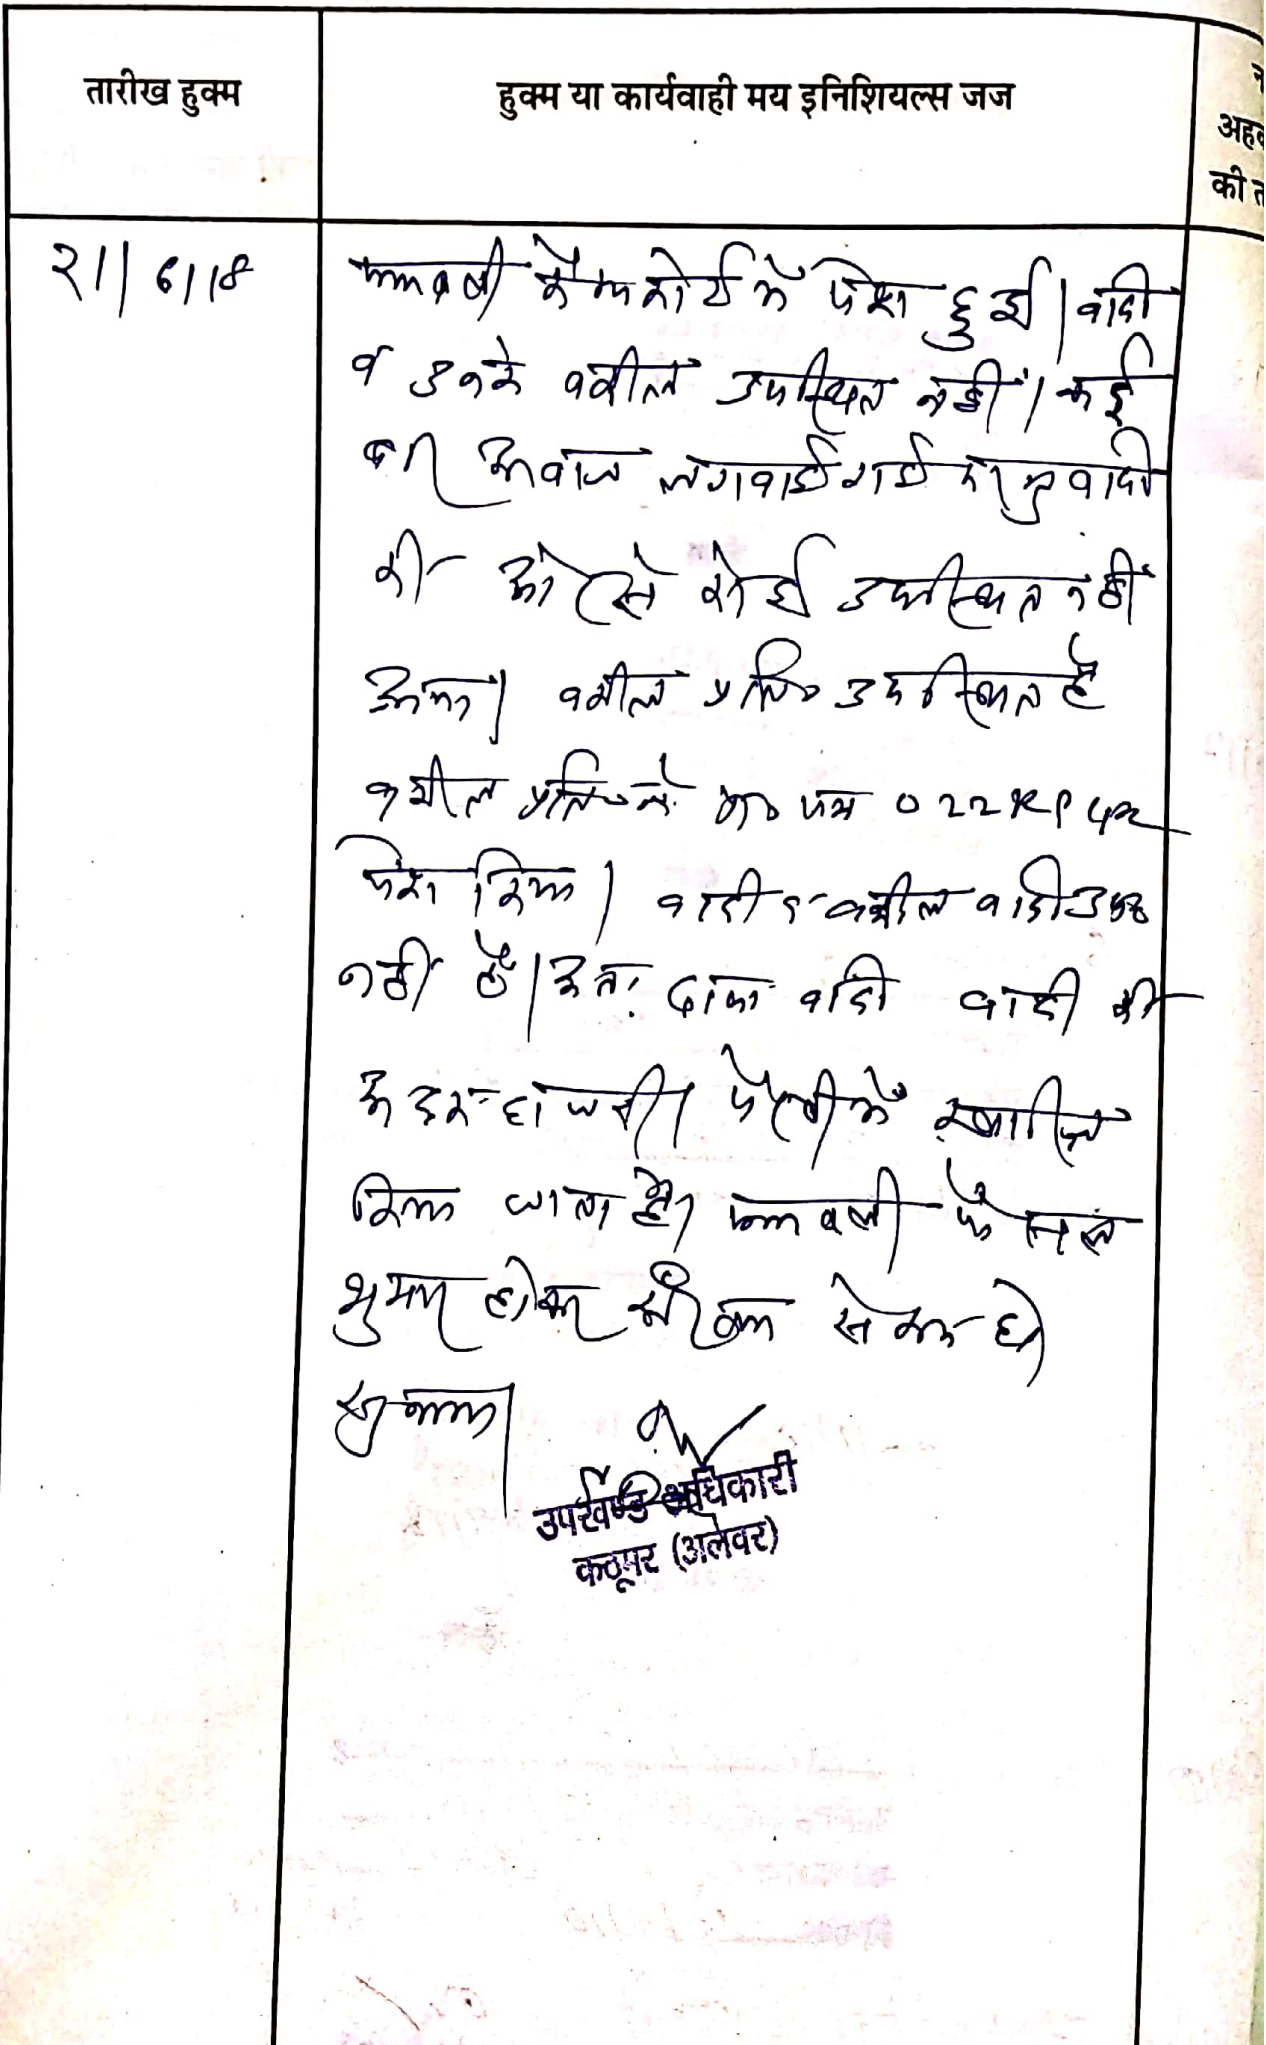 तारीख हुक्म
हुक्म या कार्यवाही मय इनिशियल्स जज
अहक
की त
21/6/18
पत्रावली कैम्प कोर्ट में पेश हुई। वादी
व उनके वकील उपस्थित नहीं। कई
बार आवाज लगवाई गई परन्तु वादी
की ओर से कोई उपस्थित नहीं
आया। वकील प्रति० उपस्थित है
वकील प्रति० ने प्रा० पत्र
पेश किया। वादी व वकील वादी उप०
नहीं है। अतः वादी वादी की
अदम हाजरी पैरवी में खारिज
किया जाता है। पत्रावली फैसल
शुमार होकर दाखिल हो
सुनाया।
उपखण्ड अधिकारी
कठूमर (अलवर)